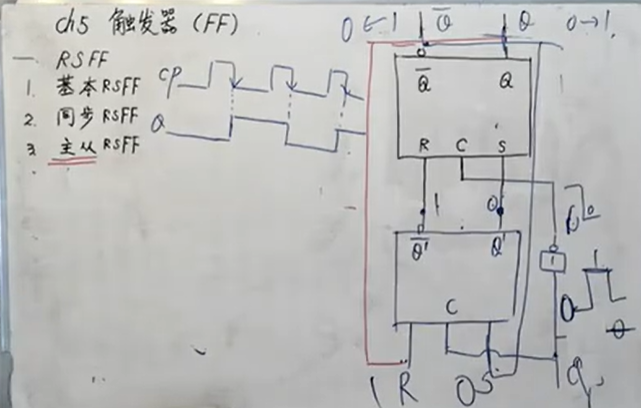 ch5 触发器 (FF)
一 RSFF
1. 基本RSFF
2. 同步RSFF
3. 主从RSFF
CP
Q
0 ← 1 Q̅ Q 0→1
Q̅ Q
R C S
1 0
Q̅' Q'
1
C
1 R 0 S